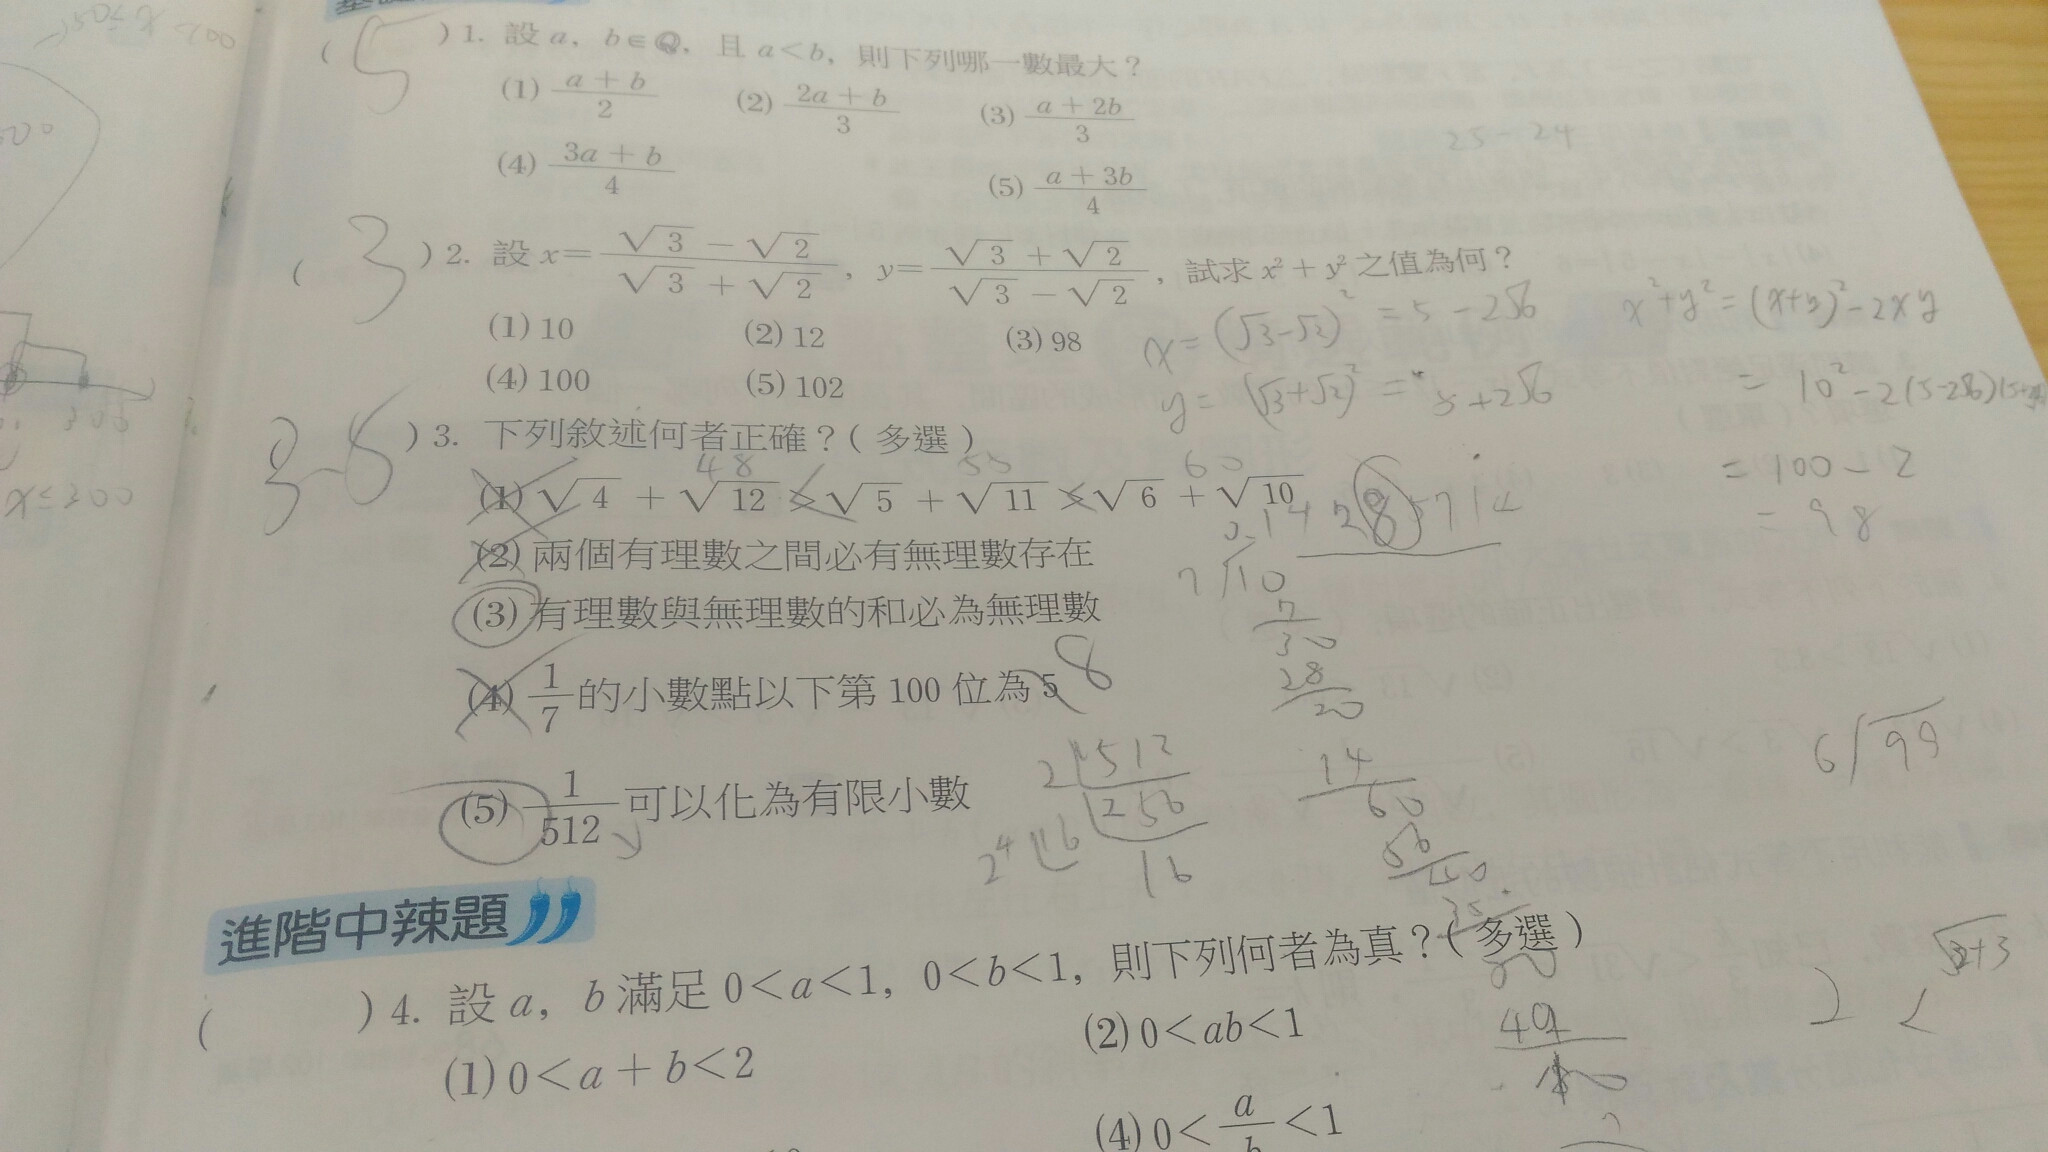 -150≦x≦200
( 5 ) 1. 設 a, b∈Q, 且 a<b, 則下列哪一數最大?
(1) \frac{a+b}{2} (2) \frac{2a+b}{3} (3) \frac{a+2b}{3}
25-24
(4) \frac{3a+b}{4} (5) \frac{a+3b}{4}
( 3 ) 2. 設 x=\frac{√3-√2}{√3+√2}, y=\frac{√3+√2}{√3-√2}, 試求 x²+y² 之值為何?
(1) 10 (2) 12 (3) 98
x=(√3-√2)²=5-2√6
x²+y²=(x+y)²-2xy
(4) 100 (5) 102
y=(√3+√2)²=5+2√6
=10²-2(5-2√6)(5+
3-5 ) 3. 下列敘述何者正確?(多選)
=100-2
=98
48 55 60
(1) √4+√12>√5+√11>√6+√10
0.14285714
(2) 兩個有理數之間必有無理數存在
7 10
(3) 有理數與無理數的和必為無理數
7
30
28
20
(4) \frac{1}{7} 的小數點以下第 100 位為 5 8
14
60
56
40
35
(5) \frac{1}{512} 可以化為有限小數
2 512
256
2⁴ 16
16
6 99
x≤300
進階中辣題
( ) 4. 設 a, b 滿足 0<a<1, 0<b<1, 則下列何者為真?(多選)
(1) 0<a+b<2 (2) 0<ab<1
(4) 0<\frac{a}{b}<1